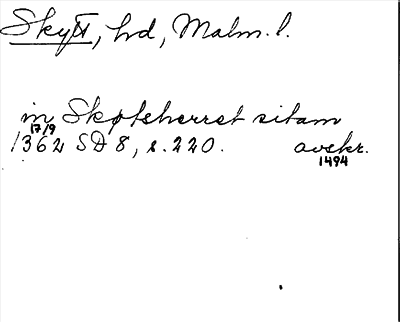 Skytt, hd, Malm. l.
in Skøtsherret sitam
17/9
1362 SD 8, s. 220. avskr.
1494